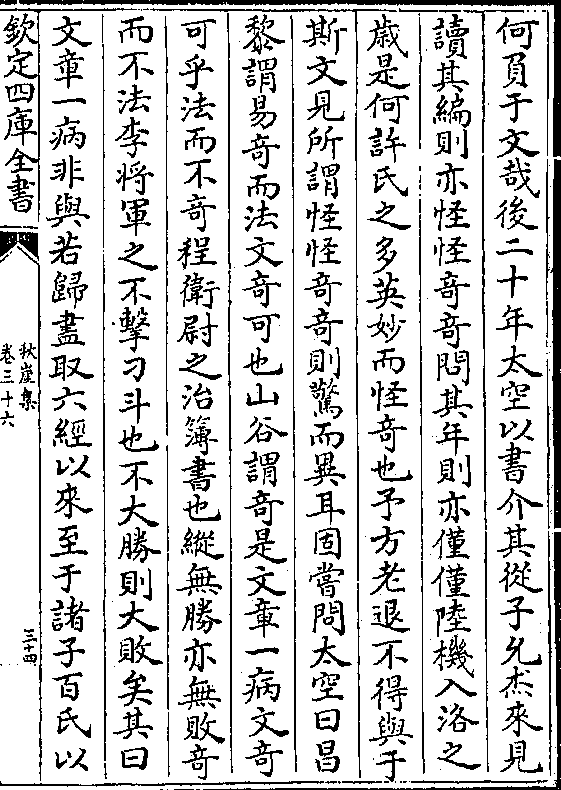 何負于文哉後二十年太空以書介其從子允杰來見
讀其編則亦怪怪奇奇問其年則亦僅僅陸機入洛之
歲是何許氏之多英妙而怪奇也予方老退不得與于
斯文見所謂怪怪奇奇則驚而異耳固嘗問太空曰昌
黎謂易奇而法文奇可也山谷謂奇是文章一病文奇
可乎法而不奇程衛尉之治簿書也縱無勝亦無敗奇
而不法李將軍之不擊刁斗也不大勝則大敗矣其曰
文章一病非與若歸盡取六經以來至于諸子百氏以
欽定四庫全書
秋崖集
卷三十六
三十四